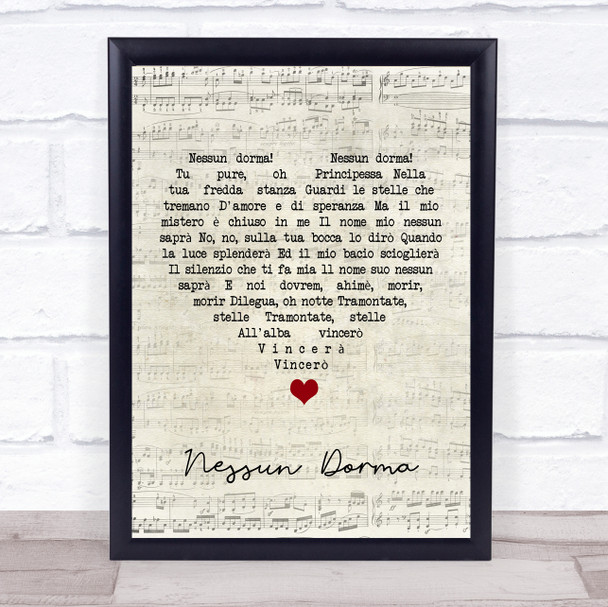 Nessun dorma! Nessun dorma!
Tu pure, oh Principessa Nella
tua fredda stanza Guardi le stelle che
tremano D'amore e di speranza Ma il mio
mistero è chiuso in me Il nome mio nessun
saprà No, no, sulla tua bocca lo dirò Quando
la luce splenderà Ed il mio bacio scioglierà
Il silenzio che ti fa mia ll nome suo nessun
saprà E noi dovrem, ahimè, morir,
morir Dilegua, oh notte Tramontate,
stelle Tramontate, stelle
All'alba vincerò
Vincerà
Vincerò
Nessun Dorma